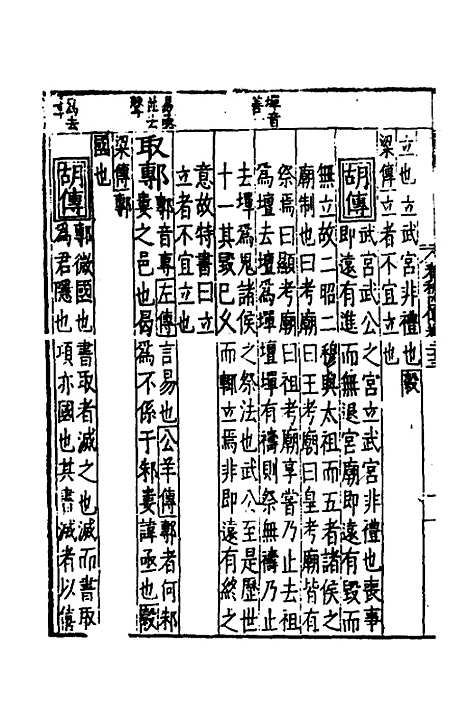 立也立武宮非禮也穀
梁傳立者不宜立也
胡傳武宮武公之宮立武宮非禮也喪事
即遠有進而無退宮廟即遠有毀而
無立故二昭二穆與太祖而五者諸侯之
廟制也曰考廟曰王考廟曰皇考廟皆有
祭焉曰顯考廟曰祖考廟享嘗乃止去祖
爲壇去壇爲墠壇墠有禱則祭無禱乃止
去墠爲鬼諸侯之祭法也武公至是歷世
十一其毀已久而輒立焉非即遠有終之
意故特書曰立
立者不宜立也
取鄟鄟音專左傳言易也公羊傳鄟者何邾
婁之邑也曷爲不係于邾婁諱亟也穀
梁傳鄟
國也
胡傳鄟微國也書取者滅之也滅而書取
爲君隱也項亦國也其書滅者以僖
墠音
善
易去
聲
爲去